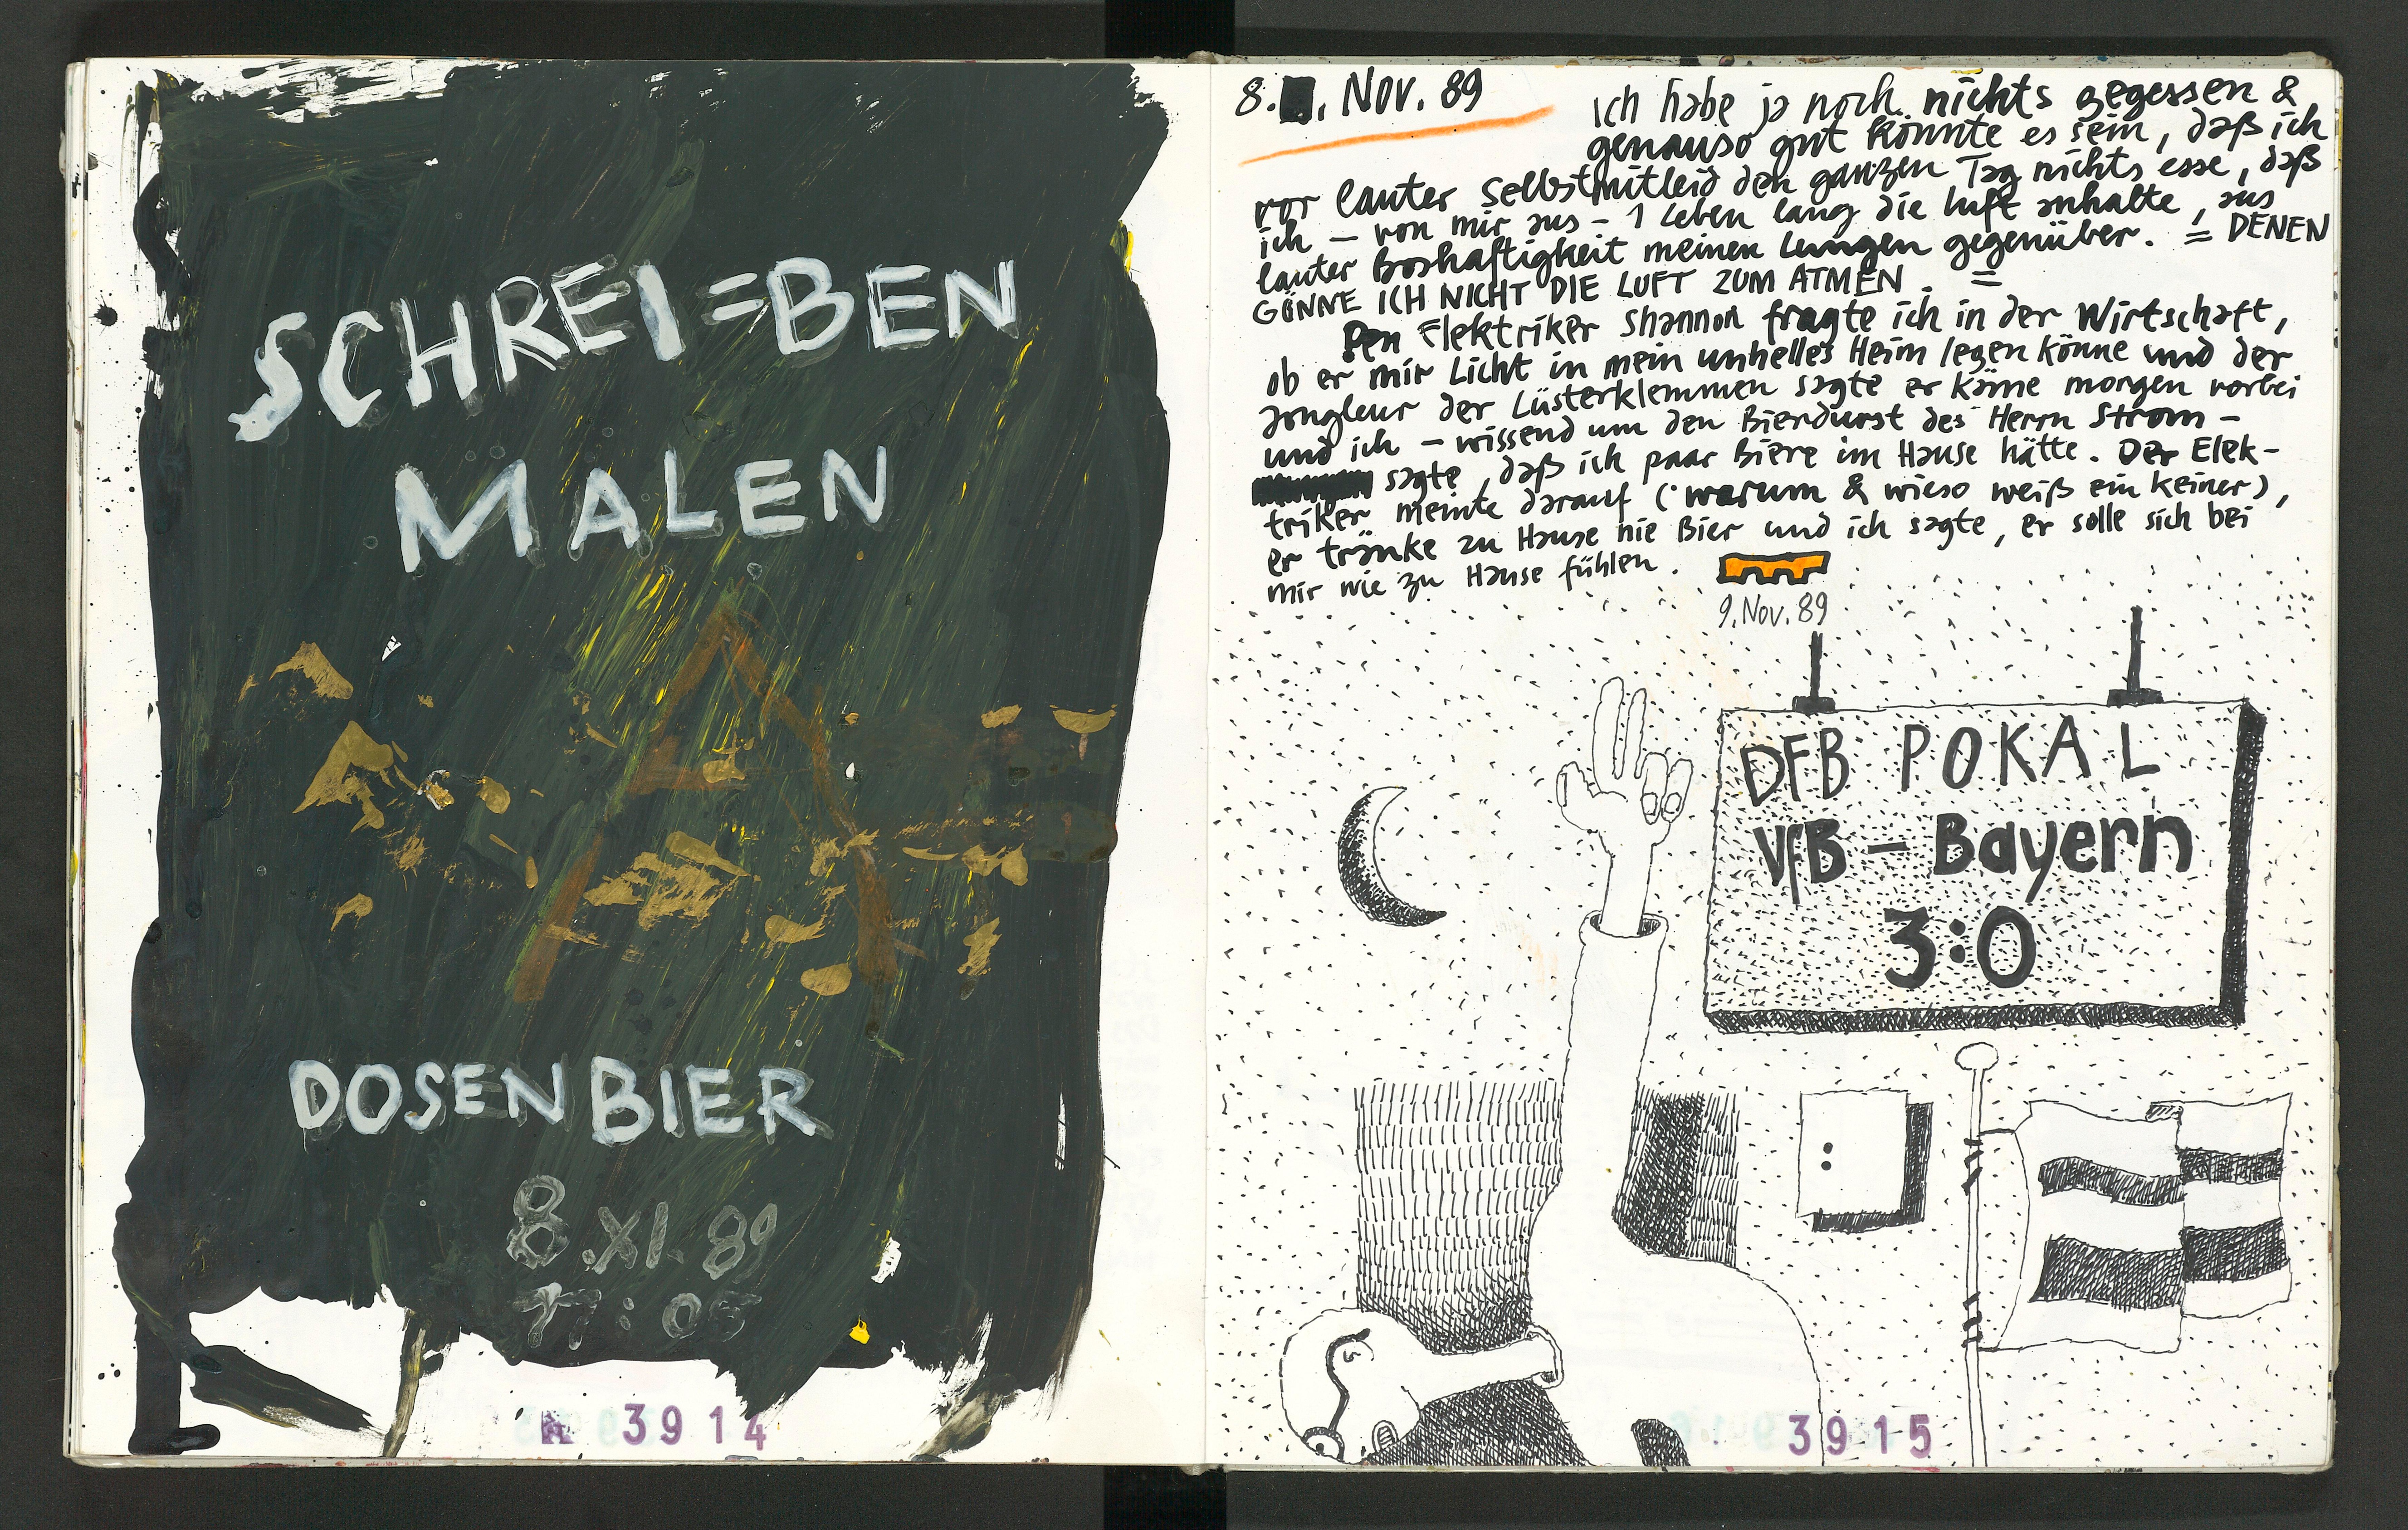 SCHREI=BEN
MALEN
DOSENBIER
8.XI.89
3914
8. Nov. 89
Ich habe ja noch nichts gegessen &
genauso gut könnte es sein, daß ich
vor lauter Selbstmitleid den ganzen Tag nichts esse, daß
ich – von mir aus – 1 Leben lang die Luft anhalte, aus
lauter Boshaftigkeit meinen Lungen gegenüber. = DENEN
GÖNNE ICH NICHT DIE LUFT ZUM ATMEN. =
Den Elektriker Shannon fragte ich in der Wirtschaft,
ob er mir Licht in mein unhelles Heim legen könne und der
Jongleur der Lüsterklemmen sagte er käme morgen vorbei
und ich – wissend um den Bierdurst des Herrn Strom –
sagte, daß ich paar Biere im Hause hätte. Der Elek-
triker meinte darauf (warum & wieso weiß ein keiner),
er tränke zu Hause nie Bier und ich sagte, er solle sich bei
mir wie zu Hause fühlen.
9. Nov. 89
DFB POKAL
VfB – Bayern
3:0
3915